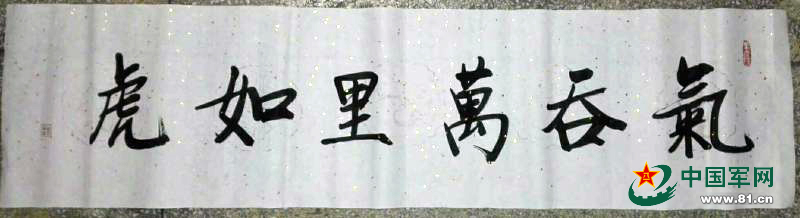 氣吞萬里如虎
中国军网
www.81.cn